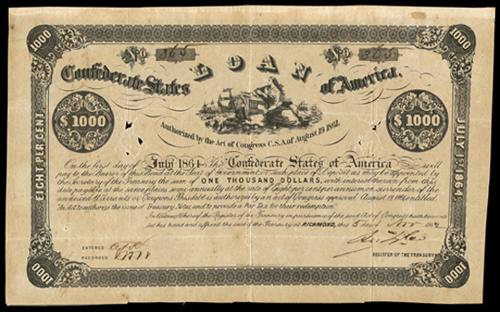 1000 1000
No 265 No 265
Confederate States LOAN of America.
Authorized by the Act of Congress C.S.A. of August 19, 1861.
$ 1000 $ 1000
EIGHT PER CENT.
JULY 1, 1864
On the first day of July 1864 the Confederate States of America will
pay to the Bearer of this Bond at the Seat of Government or at such place of deposit as may be appointed by
the Secretary of the Treasury the sum of ONE THOUSAND DOLLARS, with interest thereon from this
date payable at the same place semi-annually at the rate of Eight per cent per annum on surrender of the
annexed Warrants or Coupons. This debt is authorized by an act of Congress approved August 19, 1861 entitled
An Act to authorize the issue of Treasury Notes, and to provide a War Tax for their redemption
In Witness Whereof the Register of the Treasury in pursuance of the said Act of Congress hath hereunto
set his hand and affixed the seal of the Treasury at RICHMOND, this 5 day of Nov 186
ENTERED
RECORDED
REGISTER OF THE TREASURY
1000 1000